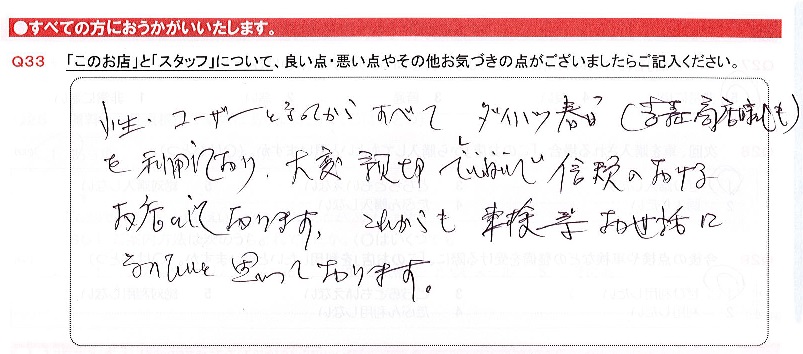 ●すべての方におうかがいいたします。
Q33 「このお店」と「スタッフ」について、良い点・悪い点やその他お気づきの点がございましたらご記入ください。
小生・ユーザーとなってからすべて ダイハツ春日（商店様も）
を利用しており、大変親切ていねいで信頼のおける
お店であります。これからも車検等お世話に
なりたいと思っております。